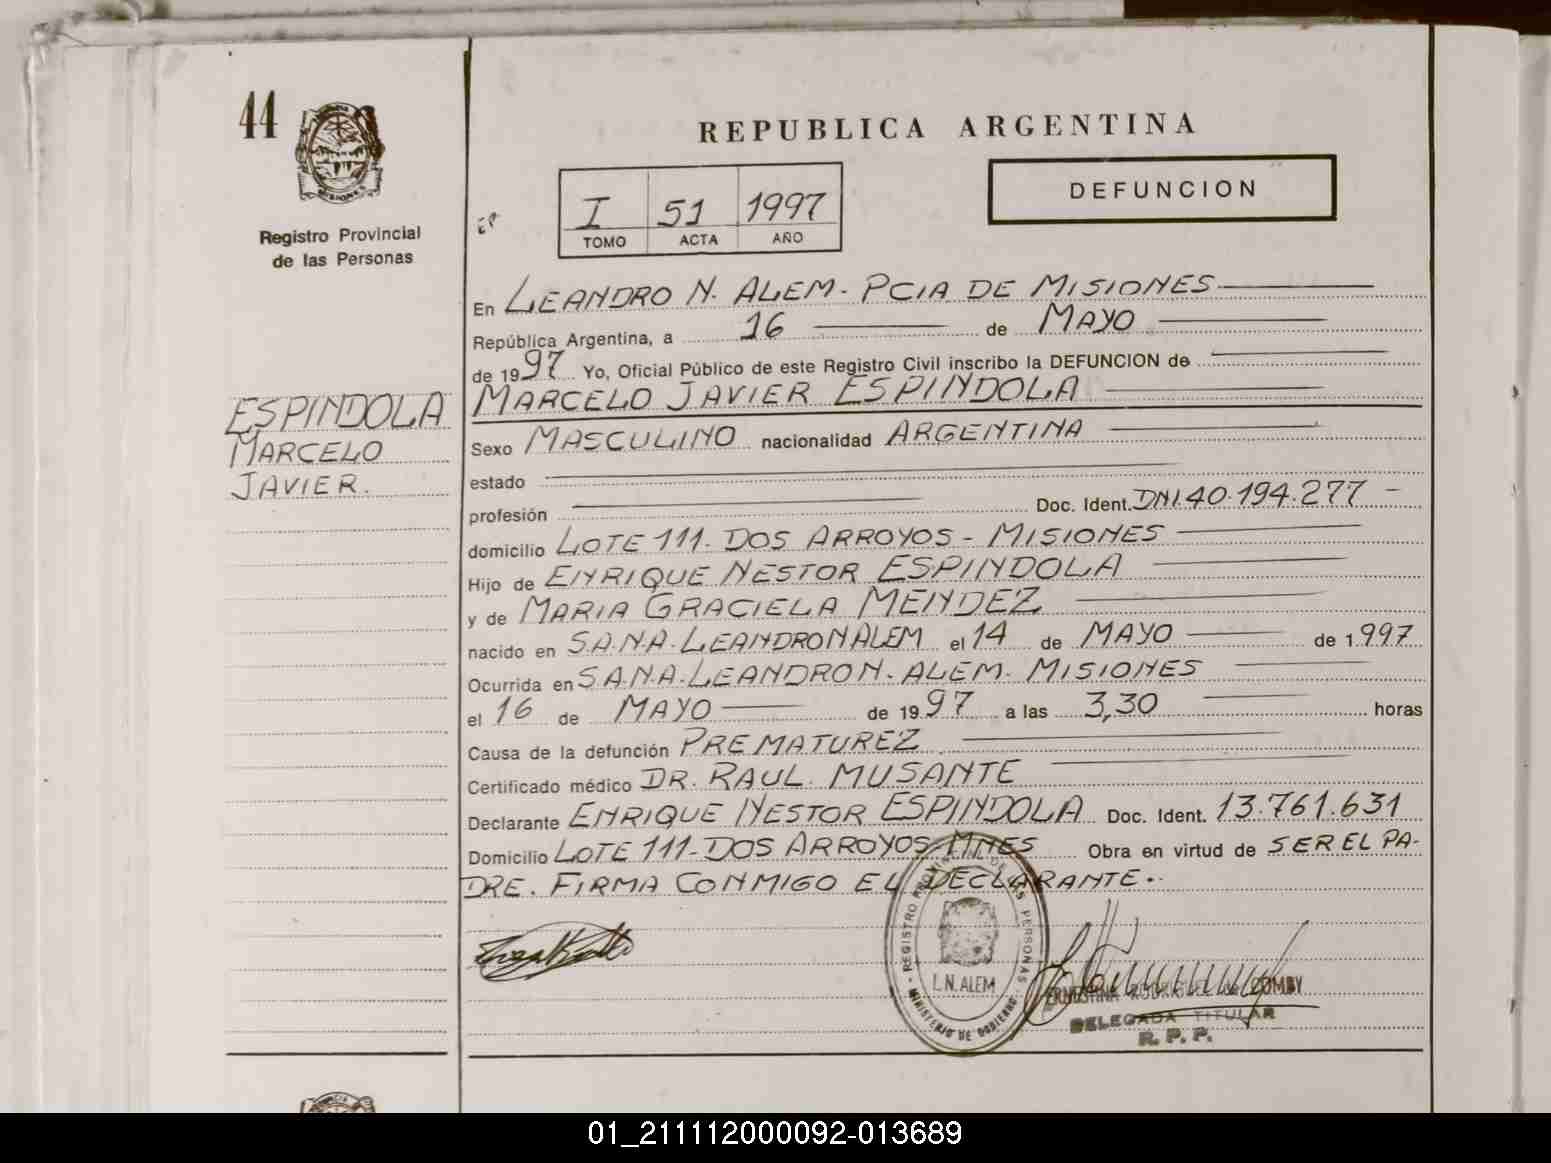 44
REPUBLICA ARGENTINA
DEFUNCION
I 51 1997
TOMO ACTA AÑO
Registro Provincial
de las Personas
En LEANDRO N. ALEM - PCIA DE MISIONES
República Argentina, a 16 de MAYO
de 1997 Yo, Oficial Público de este Registro Civil inscribo la DEFUNCION de
MARCELO JAVIER ESPINDOLA
ESPINDOLA
MARCELO
JAVIER.
Sexo MASCULINO nacionalidad ARGENTINA
estado
profesión Doc. Ident. DNI.40.194.277-
domicilio LOTE 111- DOS ARROYOS - MISIONES
Hijo de ENRIQUE NESTOR ESPINDOLA
y de MARIA GRACIELA MENDEZ
nacido en S.A.N.A. LEANDRO N ALEM el 14 de MAYO de 1.997
Ocurrida en S.A.N.A. LEANDRO N. ALEM. MISIONES
el 16 de MAYO de 1997 a las 3,30 horas
Causa de la defunción PREMATUREZ
Certificado médico DR. RAUL MUSANTE
Declarante ENRIQUE NESTOR ESPINDOLA Doc. Ident. 13.761.631
Domicilio LOTE 111- DOS ARROYOS MNES Obra en virtud de SER EL PA-
DRE. FIRMA CONMIGO EL DECLARANTE.
REGISTRO PROVINCIAL DE LAS PERSONAS
L.N. ALEM
MINISTERIO DE GOBIERNO
ERNESTINA RODRIGUEZ de COMBY
DELEGADA TITULAR
R. P. P.
01_211112000092-013689